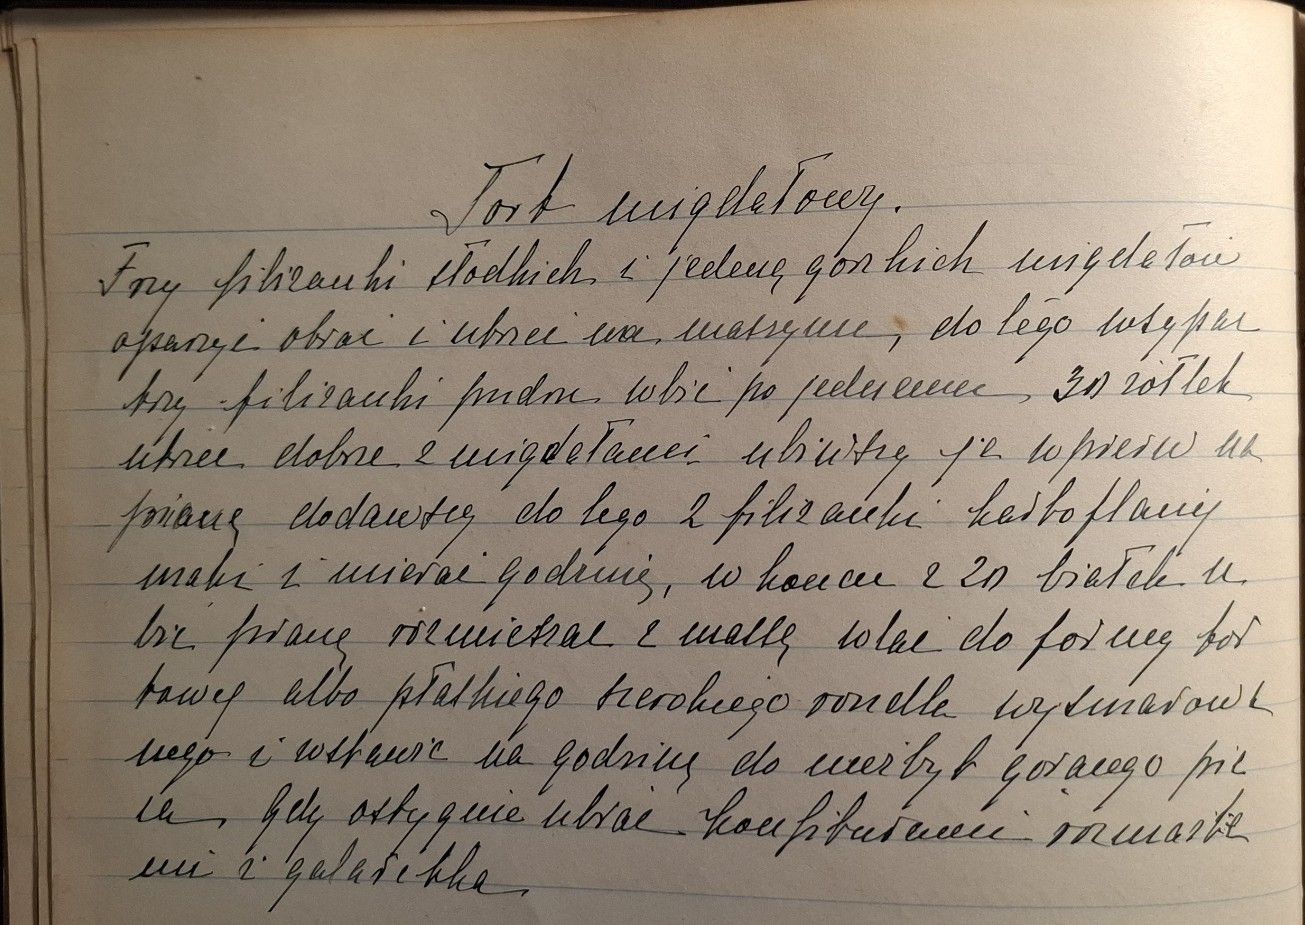 Tort migdałowy.
Trzy filiżanki słodkich i jedeną gorzkich migdałów
oparzyć obrać i utrzeć na maszynce, do tego wsypać
trzy filiżanki pudru wbić po jednemu 30 żółtek
utrzeć dobrze z migdałami ubiwszy je wpierw na
pianę dodawszy do tego 2 filiżanki kartoflanej
mąki i mierać godzinę, w końcu z 20 białek u
bić pianę rozmieszać z masą wlać do formy tor
towej albo płaskiego szerokiego rondla wysmarowa
nego i wstawić na godzinę do niezbyt gorącego pie
ca. Gdy ostygnie ubrać konfiturami rozmaite
mi i galaretka